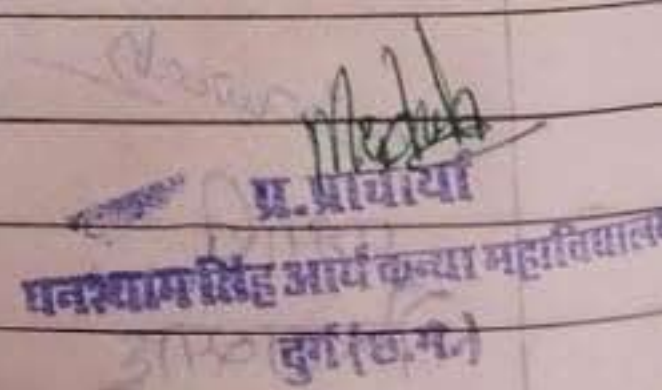 प्र. प्राचार्या
घनश्याम सिंह आर्य कन्या महाविद्यालय
दुर्ग (छ.ग.)